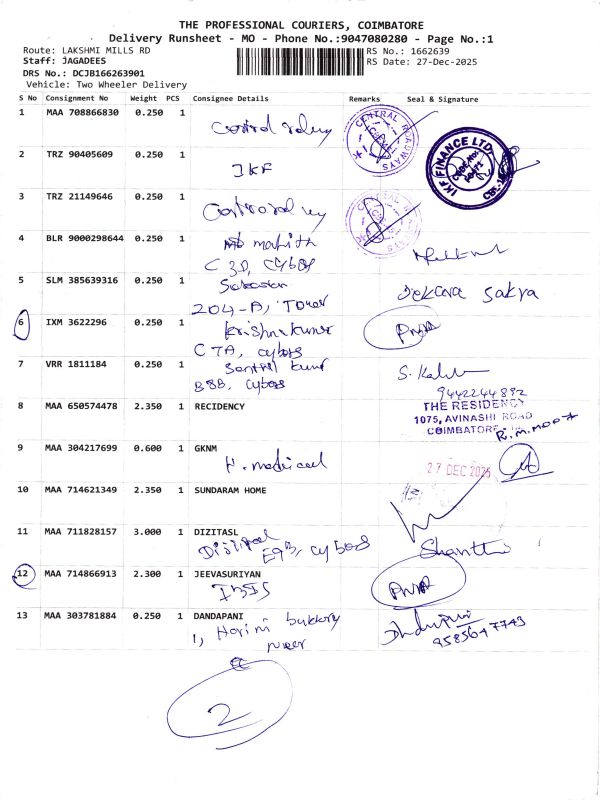 THE PROFESSIONAL COURIERS, COIMBATORE
Delivery Runsheet - MO - Phone No.:9047080280 - Page No.:1
Route: LAKSHMI MILLS RD RS No.: 1662639
Staff: JAGADEES RS Date: 27-Dec-2025
DRS No.: DCJB166263901
Vehicle: Two Wheeler Delivery
S No Consignment No Weight PCS Consignee Details Remarks Seal & Signature
1 MAA 708866830 0.250 1
CENTRAL RAILWAYS
2 TRZ 90405609 0.250 1
IKF
IKF FINANCE LTD
3 TRZ 21149646 0.250 1
4 BLR 9000298644 0.250 1
C 30, Cybers
5 SLM 385639316 0.250 1
204-A, Tower
Sakya
6 IXM 3622296 0.250 1
Krishnakumar
C7A, Cybers
7 VRR 1811184 0.250 1
B8B, Cybers
S.
9442244892
8 MAA 650574478 2.350 1 RECIDENCY
THE RESIDENCY
1075, AVINASHI ROAD
COIMBATORE
9 MAA 304217699 0.600 1 GKNM
H. medical
27 DEC 2025
10 MAA 714621349 2.350 1 SUNDARAM HOME
11 MAA 711828157 3.000 1 DIZITASL
E9B, Cybers
Shanthi
12 MAA 714866913 2.300 1 JEEVASURIYAN
IBIS
13 MAA 303781884 0.250 1 DANDAPANI
1, Harini
9585647743
2